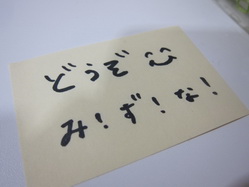 どうぞ
み！ず！な！